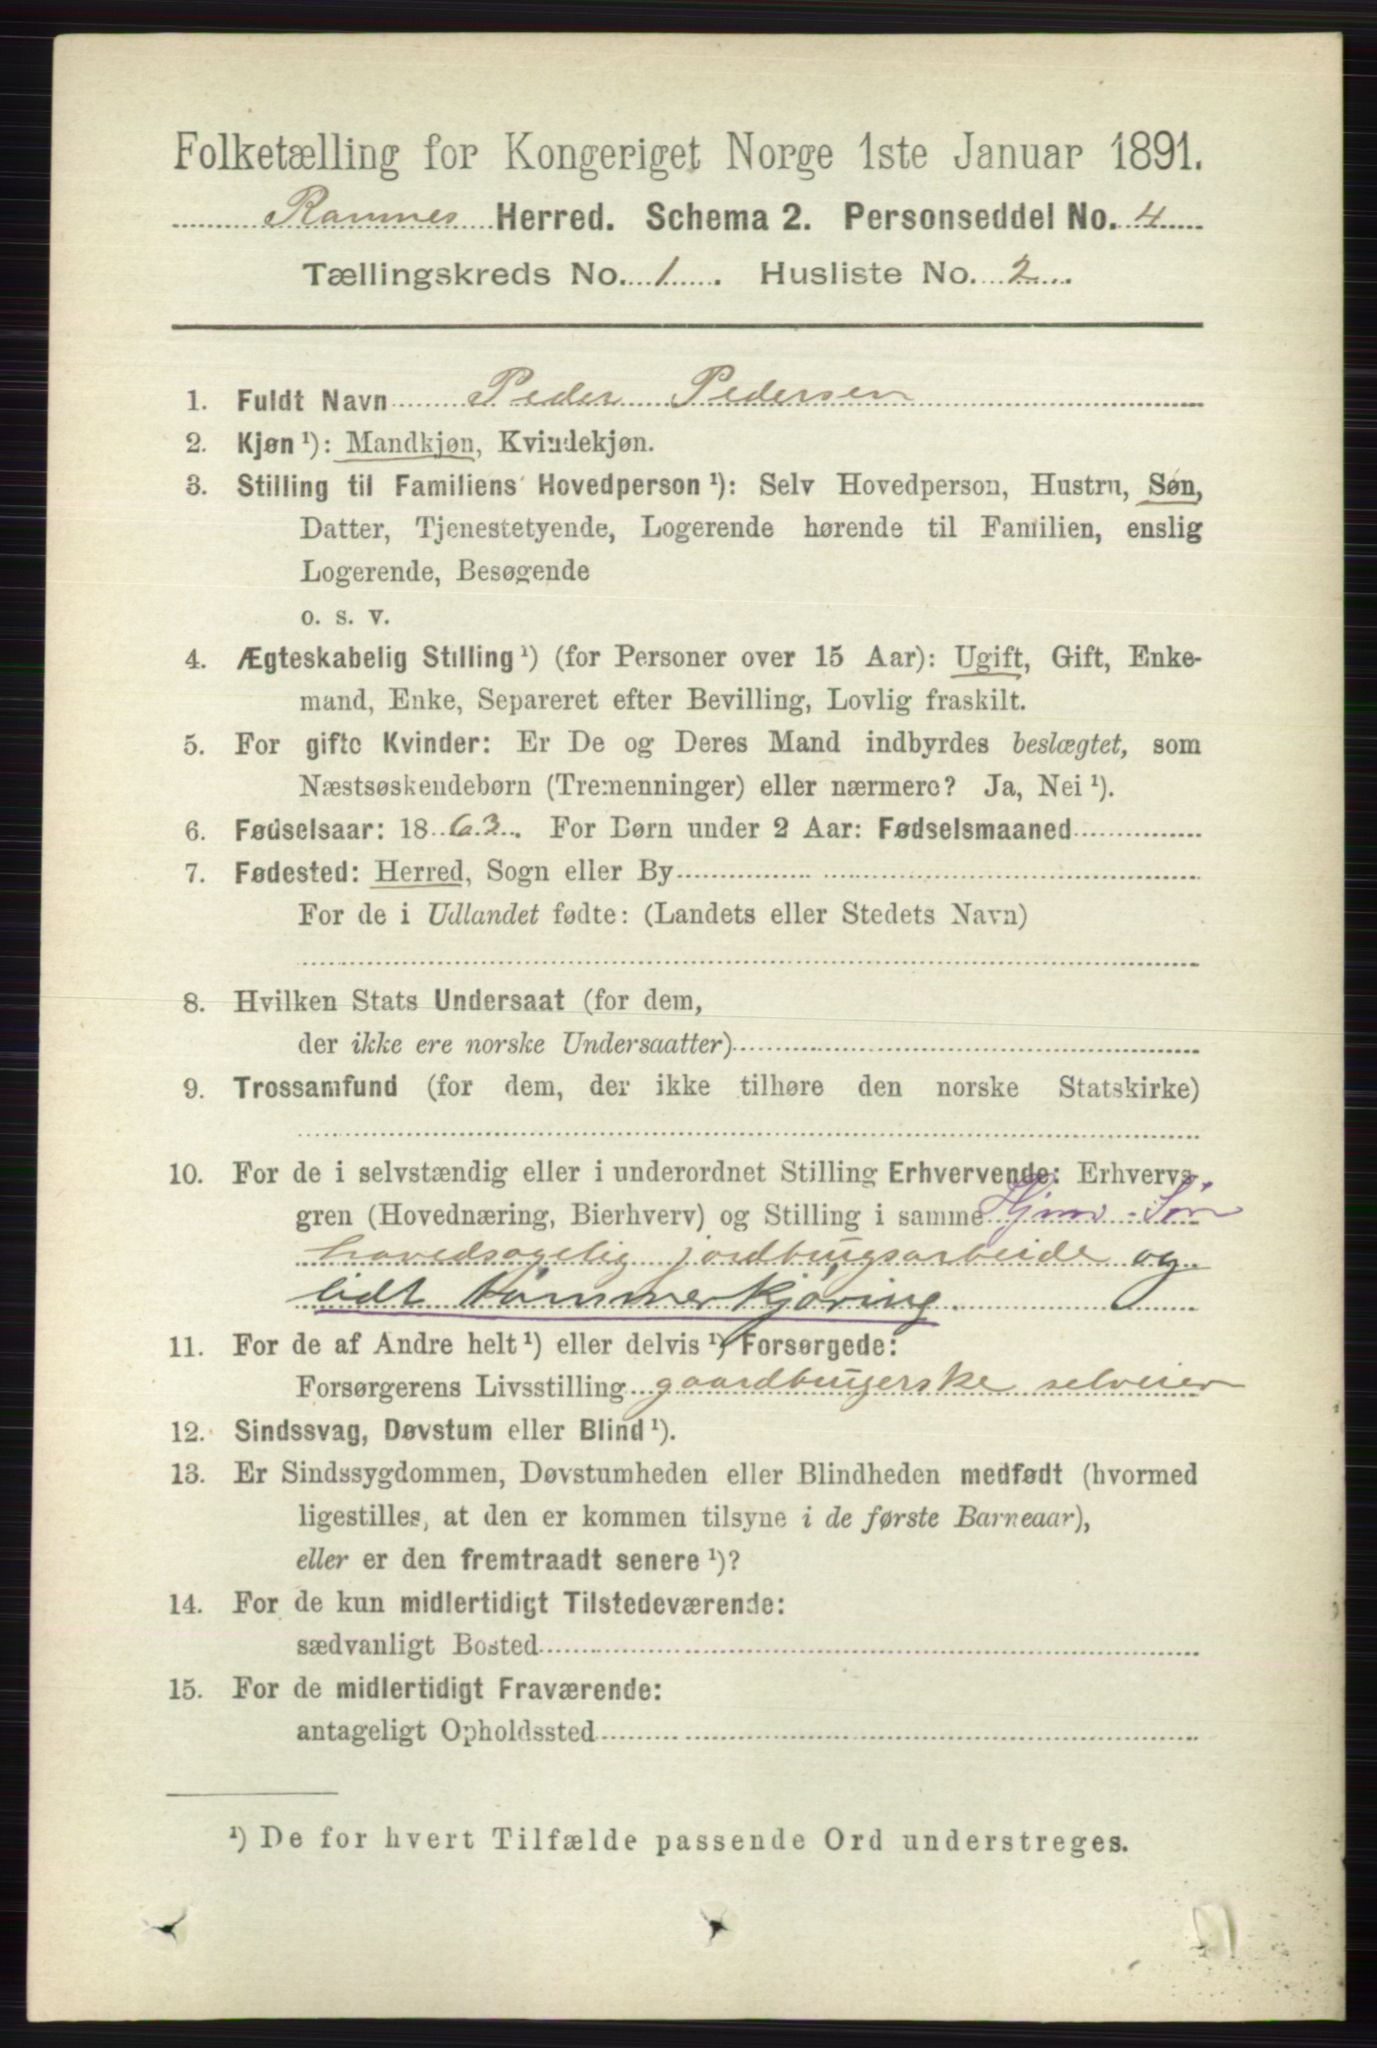 Folketælling for Kongeriget Norge 1ste Januar 1891.
Ramnes Herred. Schema 2. Personseddel No. 4
Tællingskreds No. 1. Husliste No. 2.
1. Fuldt Navn Peder Pedersen
2. Kjøn ¹): Mandkjøn, Kvindekjøn.
3. Stilling til Familiens Hovedperson ¹): Selv Hovedperson, Hustru, Søn,
Datter, Tjenestetyende, Logerende hørende til Familien, enslig
Logerende, Besøgende
o. s. v.
4. Ægteskabelig Stilling ¹) (for Personer over 15 Aar): Ugift, Gift, Enke-
mand, Enke, Separeret efter Bevilling, Lovlig fraskilt.
5. For gifte Kvinder: Er De og Deres Mand indbyrdes beslægtet, som
Næstsøskendebørn (Tremenninger) eller nærmere? Ja, Nei ¹).
6. Fødselsaar: 1863. For Børn under 2 Aar: Fødselsmaaned
7. Fødested: Herred, Sogn eller By
For de i Udlandet fødte: (Landets eller Stedets Navn)
8. Hvilken Stats Undersaat (for dem,
der ikke ere norske Undersaatter)
9. Trossamfund (for dem, der ikke tilhøre den norske Statskirke)
10. For de i selvstændig eller i underordnet Stilling Erhvervende: Erhvervs-
gren (Hovednæring, Bierhverv) og Stilling i samme Hjmv. Søn
hovedsagelig jordbrugsarbeide og
lidt tømmerkjøring.
11. For de af Andre helt ¹) eller delvis ¹) Forsørgede:
Forsørgerens Livsstilling gaardbrugerske selveier
12. Sindssvag, Døvstum eller Blind ¹).
13. Er Sindssygdommen, Døvstumheden eller Blindheden medfødt (hvormed
ligestilles, at den er kommen tilsyne i de første Barneaar),
eller er den fremtraadt senere ¹)?
14. For de kun midlertidigt Tilstedeværende:
sædvanligt Bosted
15. For de midlertidigt Fraværende:
antageligt Opholdssted
¹) De for hvert Tilfælde passende Ord understreges.